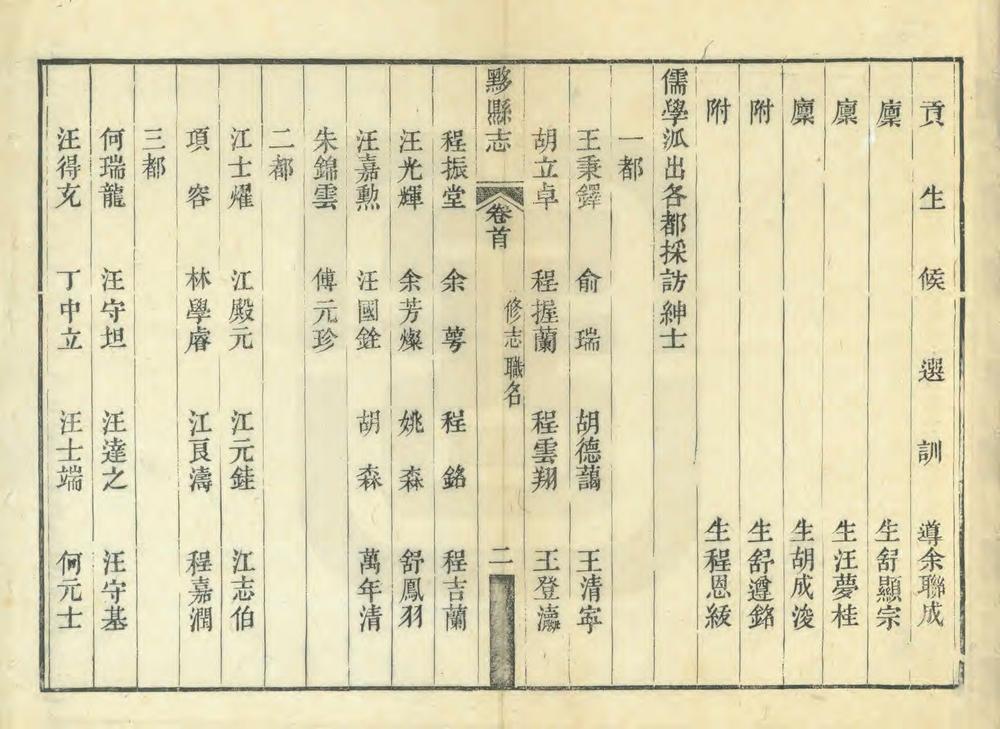 貢生候選訓導余聯成
廩生舒顯宗
廩生汪夢桂
廩生胡成浚
附生舒遵銘
附生程恩綬
儒學派出各都採訪紳士
一都
王秉鐸 俞瑞 胡德藹 王清寧
胡立卓 程握蘭 程雲翔 王登瀛
黟縣志 卷首 修志職名 二
程振堂 余蕚 程銘 程吉蘭
汪光輝 余芳燦 姚森 舒鳳羽
汪嘉勲 汪國銓 胡森 萬年清
朱錦雲 傅元珍
二都
江士燿 江殿元 江元銈 江志伯
項容 林學睿 江良濤 程嘉潤
三都
何瑞龍 汪守坦 汪達之 汪守基
汪得充 丁中立 汪士端 何元士